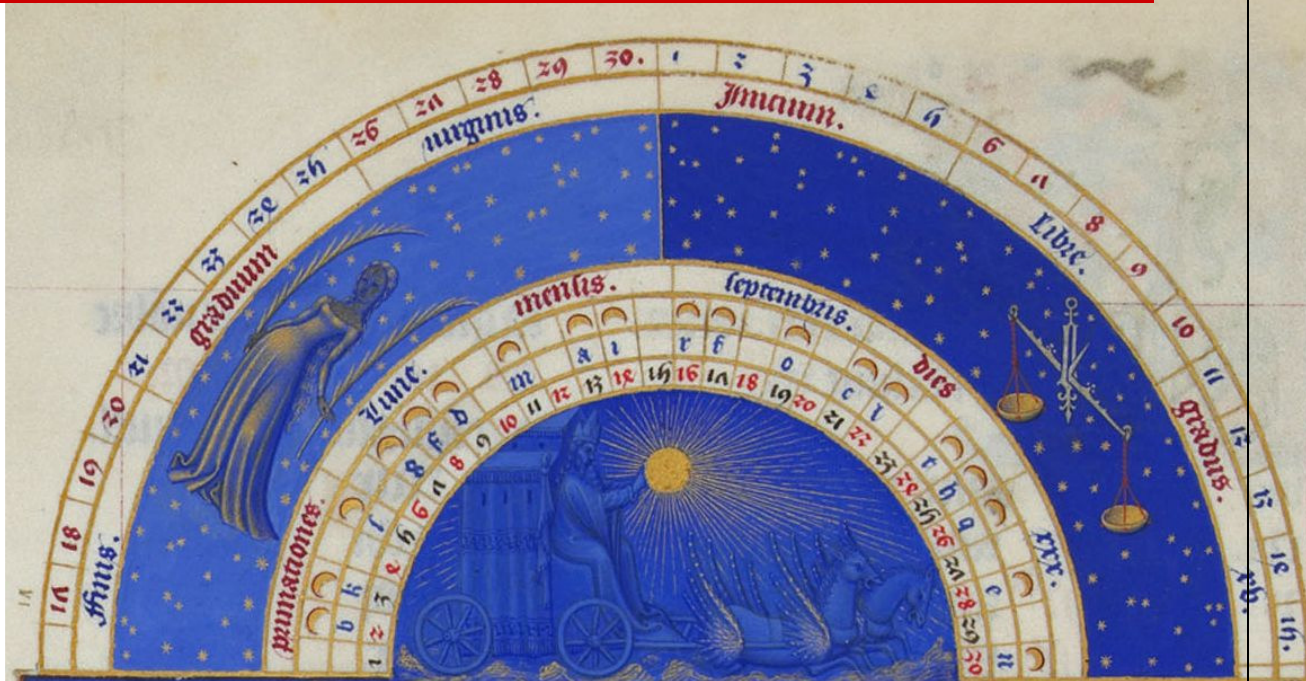 17 18 19 20 21 22 23 24 25 26 27 28 29 30. 1 2 3 4 5 6 7 8 9 10 11 12 13 14 15.
ffinis. graduum virginis. Inicium. libre. gradus. xv.
primationes. Lune. mensis. septembris. dies xxx.
b k s g p d m a i r f o c l t h q e n
1 2 3 4 5 6 7 8 9 10 11 12 13 14 15 16 17 18 19 20 21 22 23 24 25 26 27 28 29 30
17